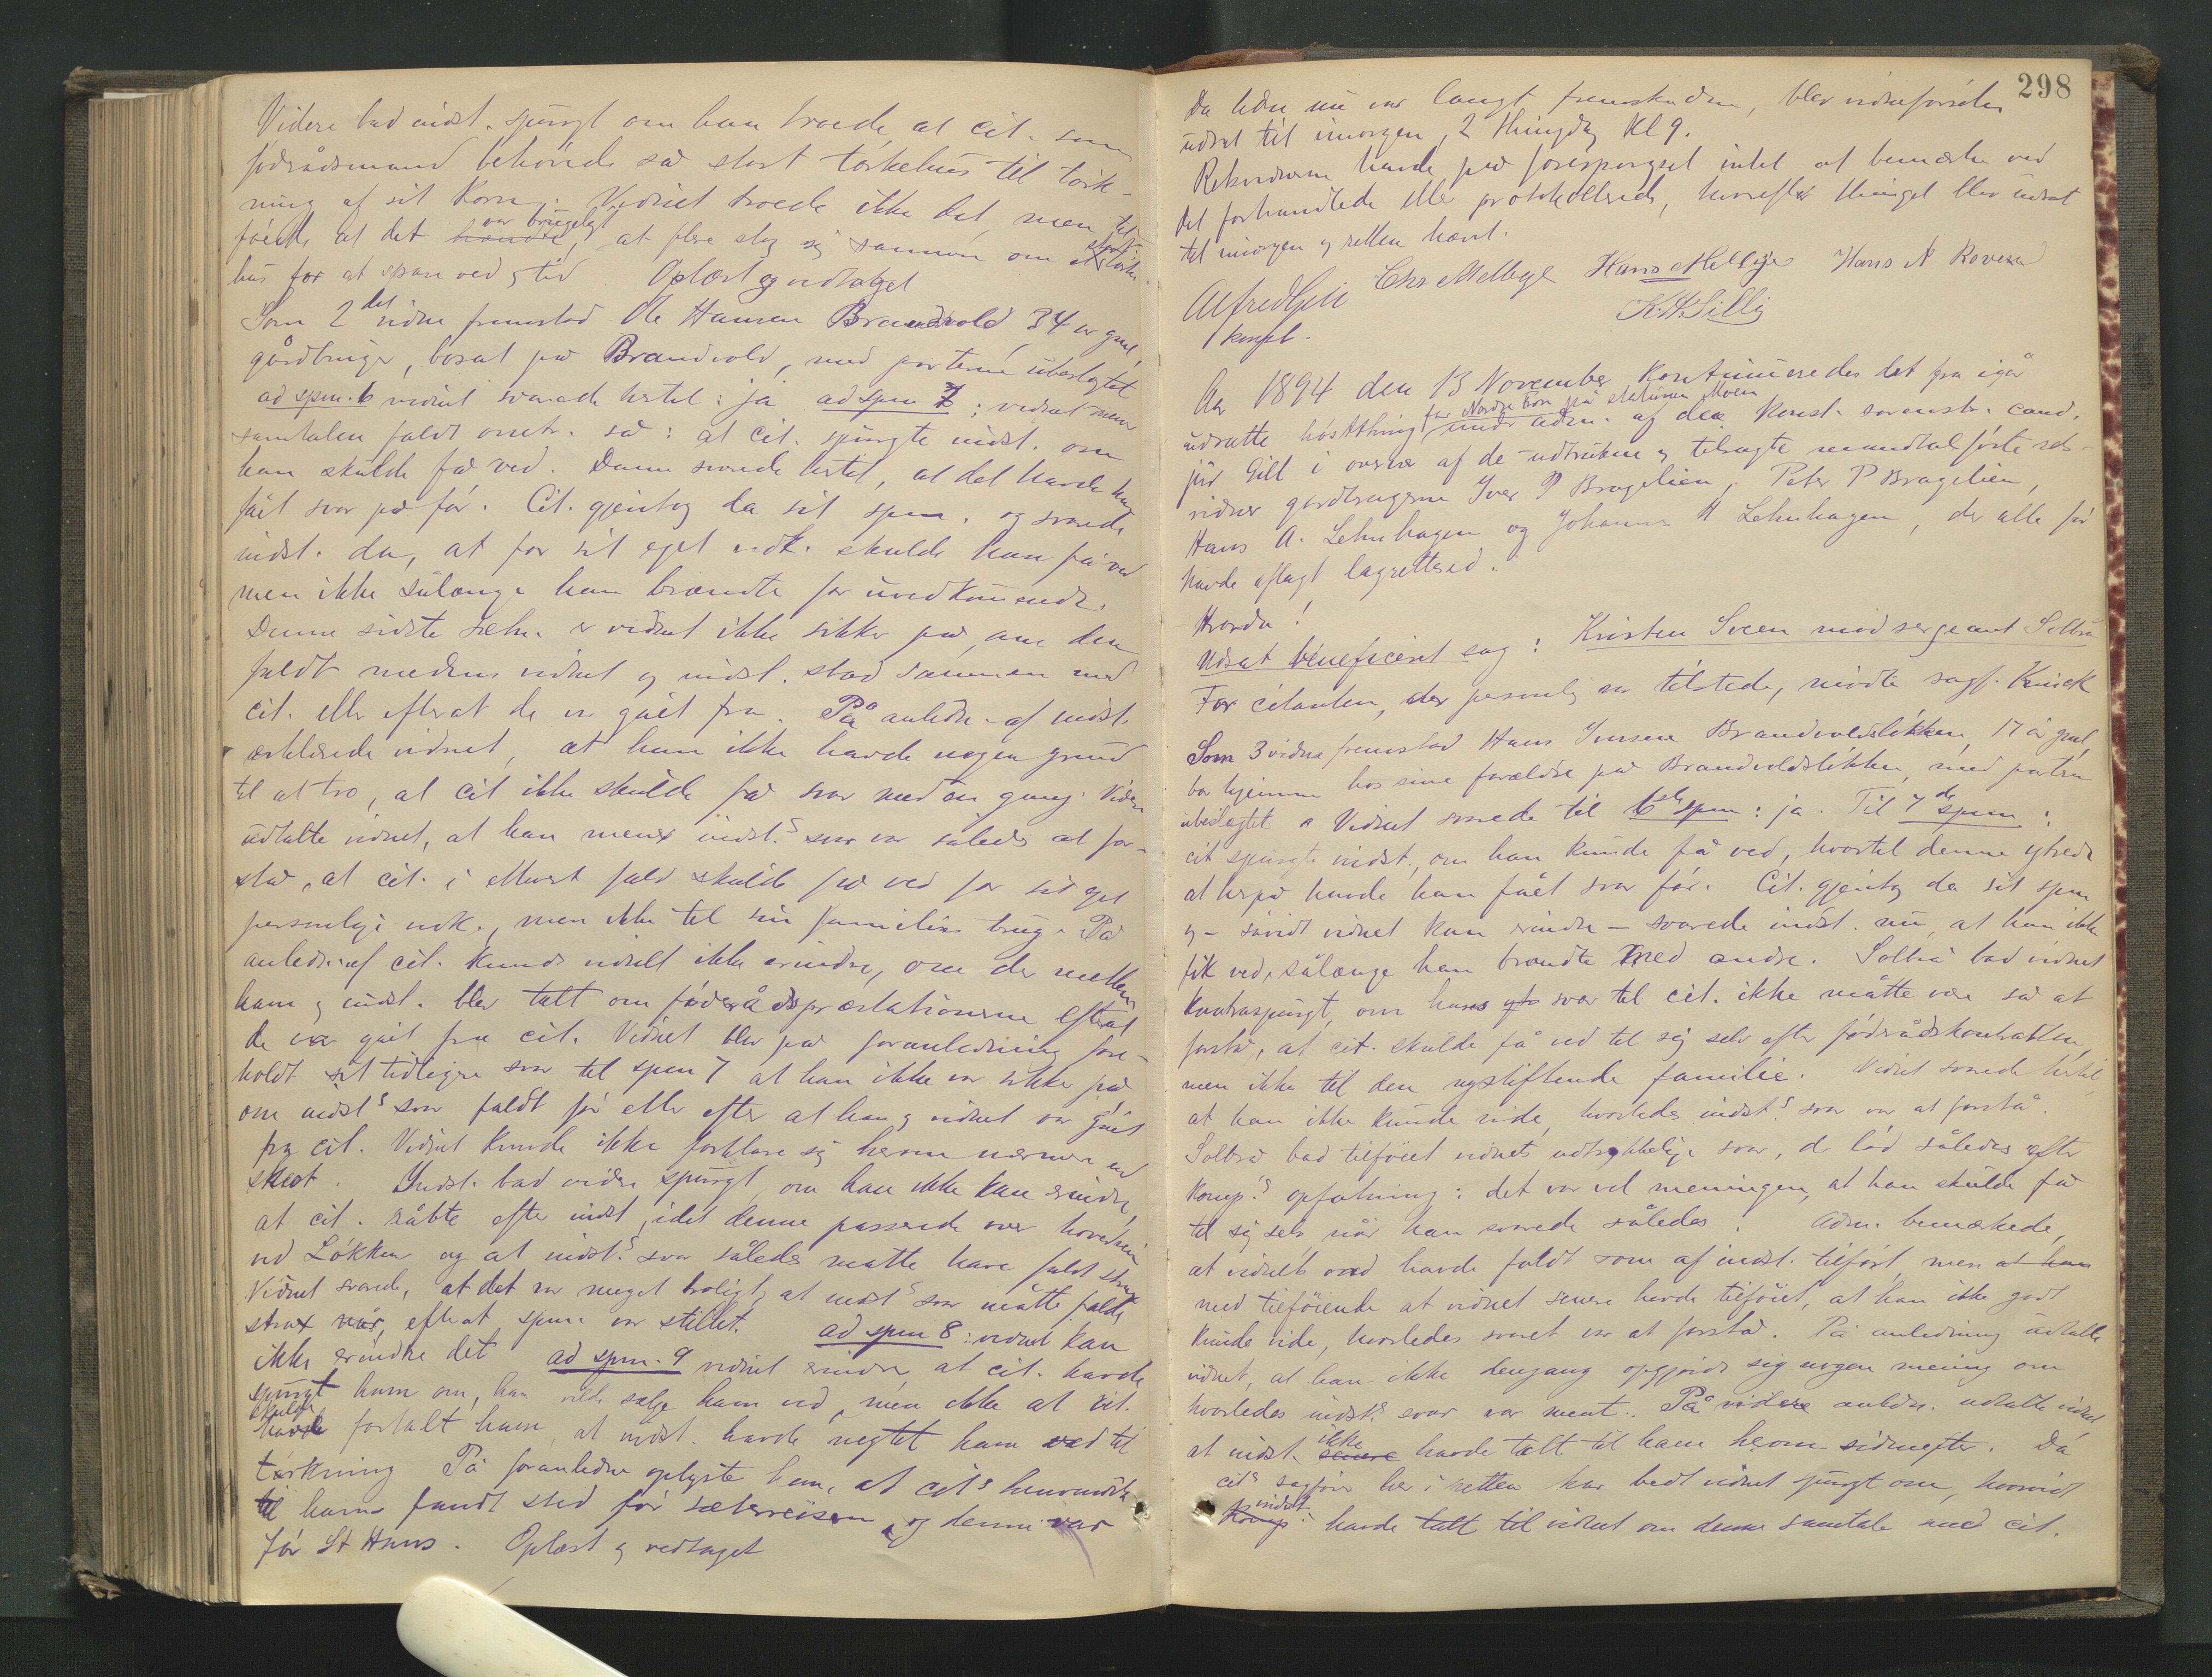 Videre bad indst. spurgt om han troede, at cit. som
föderådsmand behövede så stort törkehus til törk-
ning af sit korn. Vidnet troede ikke det, men til-
föiede at det hændte, var brugeligt at flere slog sig sammen om et törke-
hus for at spare ved og tid. Oplæst og vedtaget
Som 2det vidne fremstod Ole Hansen Brandvold, 34 år gml,
gårdbruger, bosat på Brandvold, med parterne ubeslægtet
ad spm. 6 vidnet svarede hertil: ja ad spm 7: vidnet mener
samtalen faldt omtr. så: at cit. spurgte indst. om
han skulde få ved. Denne svarede hertil, at det havde han
fåt svar på för. Cit. gjentog da sit spm. og svarede
indst. da, at for sit eget vedk. skulde han få ved
men ikke sålænge han brændte for uvedkommende.
Denne sidste sætn. er vidnet ikke sikker på, om den
faldt medens vidnet og indst. stod sammen med
cit. eller efterat de var gået fra. På anledn. af indst.
erklærede vidnet, at han ikke havde nogen grund
til at tro, at cit ikke skulde få svar med en gang. Videre
udtalte vidnet, at han mener indst.s svar var således at for-
stå, at cit. i ethvert fald skulde få ved for sit eget
personlige vedk., men ikke til sin families brug. På
anledn. af cit. kunde vidnet ikke erindre, om der mellem
ham og indst. blev talt om föderådspræstationerne efterat
de var gået fra cit. Vidnet blev på foranledning fore-
holdt sit tidligere svar til spm 7 at han ikke var sikker på
om indsts svar faldt för eller efter at han og vidnet var gået
fra cit. Vidnet kunde ikke forklare sig herom nærmere end
skeet. Indst. bad videre spurgt om han ikke kan erindre,
at cit. råbte efter indst, idet denne passerede over hovedveien
ved Lökken og at indst.s svar således måtte have faldt strax
Vidnet svarede, at det var meget troligt, at indsts svar måtte falde
strax når, efterat spm. var stillet. ad spm 8: vidnet kan
ikke erindre det ad spm. 9 vidnet erindrer, at cit. havde
spurgt ham om, han vilde sælge ham ved, men ikke at cit.
havde skulde fortalt ham, at indst. havde negtet ham ved til
törkning På foranledn oplyste han, at cits henvendelse
til ham fandt sted för sæterreisen, og denne var
för St Hans. Oplæst og vedtaget
298
Da tiden nu var langt fremskreden, blev vidneförselen
udsat til imorgen, 2 thingdag Kl 9.
Rekvirenterne havde på forespörgsel intet at bemærke ved
det forhandlede eller protokollerede, hvorefter thinget blev udsat
til imorgen og retten hævet.
Alfred Gill Chr Mellbye Hans Mellbye Hans A Rovera
konst. K.H. Lilly
Aar 1894 den 13 November kontinueredes det fra igår
udsatte hösttthing for Nordre Fron på stationen Moen under adm. af den konst. sorenskr. cand.
jur Gill i overvær af de udtrukne og tilsagte mandtalförte rets-
vidner gårdbrugerne Iver P Bragelien, Peter P Bragelien,
Hans A. Lehnhagen og Johannes H Lehnhagen, der alle för
havde aflagt lagretteed.
Hvorda!
Udsat beneficeret sag: Kristen Sveen mod sergeant Solbrå
For citanten, der personlig var tilstede, mödte sagf. Kinck
Som 3 vidne fremstod Hans Iversen Brandvoldslökken, 17 år gml,
bor hjemme hos sine forældre på Brandvoldslökken, med parterne
ubeslægtet Vidnet svarede til 6te spm: ja. Til 7de spm:
cit spurgte indst., om han kunde få ved, hvortil denne ytrede
at herpå havde han fået svar för. Cit. gjentog da sit spm
og – såvidt vidnet kan erindre – svarede indst. nu, at han ikke
fik ved, sålænge han brændte med andre. Solbrå bad vidnet
kontraspurgt, om hans svar til cit. ikke måtte være så at
forstå, at cit. skulde få ved til sig selv efter föderådskontrakten,
men ikke til den nystiftende familie. Vidnet svarede hertil,
at han ikke kunde vide, hvorledes indst.s svar var at forstå.
Solbrå bad tilföiet vidnets udtrykkelige svar, der löd således efter
komp.s opfatning: det var vel meningen, at han skulde få
til sig selv når han svarede således. Adm. bemærkede,
at vidnets ord havde faldt som af indst. tilfört, men at han
med tilföiende at vidnet senere havde tilföiet, at han ikke godt
kunde vide, hvorledes svaret var at forstå. På anledning udtalte
vidnet, at han ikke dengang opgjorde sig nogen mening om
hvorledes indsts svar var ment. På videre anledn. udtalte vidnet
at indst. senere ikke havde talt til ham herom sidenefter. Då
cits sagförer her i retten har bedt vidnet spurgt om, hvorvidt
komp. indst. havde talt til vidnet om denne samtale med cit.